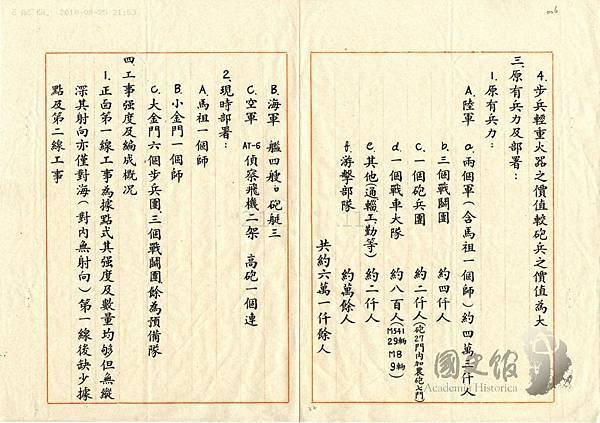 4.步兵輕重火器之價值較砲兵之價值為大
三、原有兵力及部署：
1.原有兵力：
A.陸軍 a.兩個軍（含馬祖一個師）約四萬二仟人
b.三個戰鬪團 約四仟人
c.一個砲兵團 約二仟人（砲27門內如裏砲七門）
d.一個戰車大隊 約八百人（M5A1 29輛 M8 9輛）
e.其他（通輜工勤等） 約二仟人
f.游擊部隊 約萬餘人
共約六萬一仟餘人
B.海軍 艦四艘 砲艇三
C.空軍 AT-6偵察飛機二架 高砲一個連
2.現時部署：
A.馬祖一個師
B.小金門一個師
C.大金門六個步兵團三個戰鬪團餘為預備隊
四、工事强度及編成概況
1.正面第一線工事為據點式其强度及數量均够但無縱
深其射向亦僅對海（對內無射向）第一線後缺少據
點及第二線工事
國史館
Academia Historica